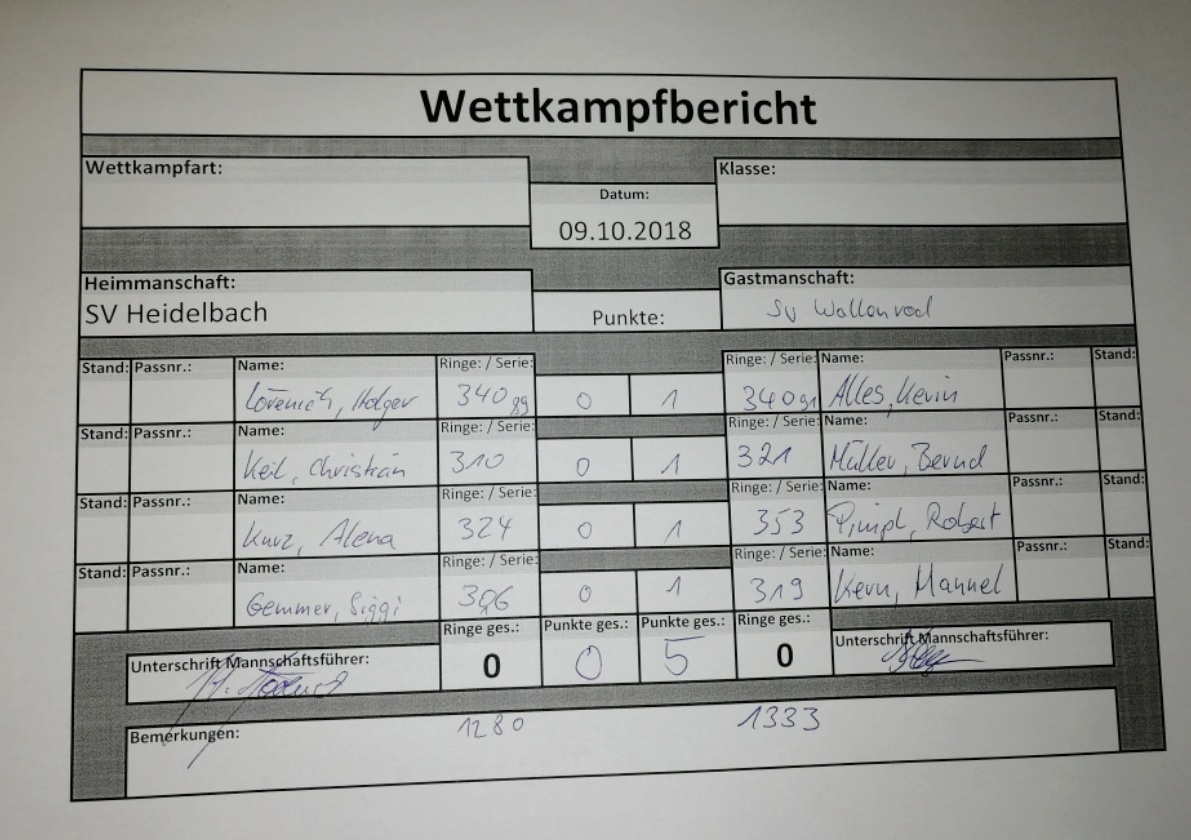 Wettkampfbericht
Wettkampfart: Klasse:
Datum:
09.10.2018
Heimmanschaft: Gastmanschaft:
SV Heidelbach Punkte: SV Wallenrod
Stand: Passnr.: Name: Ringe: / Serie: Ringe: / Serie: Name: Passnr.: Stand:
Lörenich, Holger 340 89 0 1 340 91 Alles, Kevin
Stand: Passnr.: Name: Ringe: / Serie: Ringe: / Serie: Name: Passnr.: Stand:
Keil, Christian 310 0 1 321 Müller, Bernd
Stand: Passnr.: Name: Ringe: / Serie: Ringe: / Serie: Name: Passnr.: Stand:
Kurz, Alena 324 0 1 353 Pimpl, Robert
Stand: Passnr.: Name: Ringe: / Serie: Ringe: / Serie: Name: Passnr.: Stand:
Gemmer, Siggi 306 0 1 319 Kern, Manuel
Ringe ges.: Punkte ges.: Punkte ges.: Ringe ges.:
Unterschrift Mannschaftsführer: 0 0 5 0 Unterschrift Mannschaftsführer:
Bemerkungen: 1280 1333